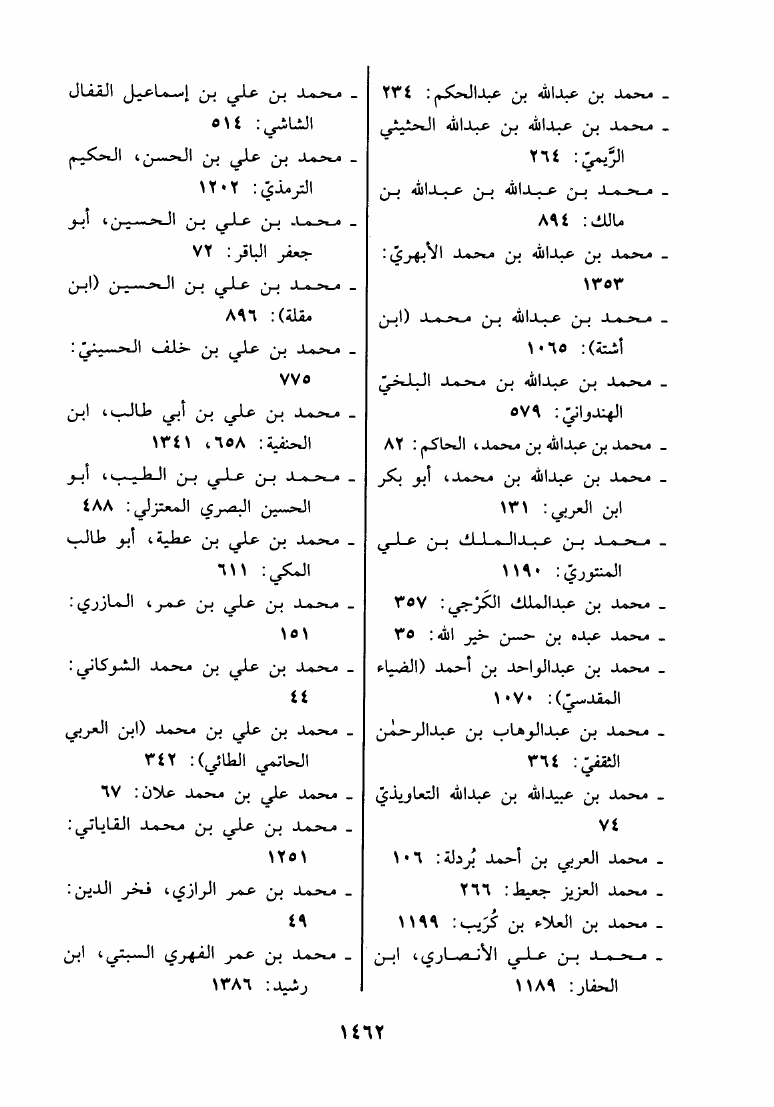 - محمد بن عبدالله بن عبدالحكم: ٢٣٤
- محمد بن عبدالله بن عبدالله الحثيثي
الرَّيميّ: ٢٦٤
- محمد بن عبدالله بن عبدالله بن
مالك: ٨٩٤
- محمد بن عبدالله بن محمد الأبهريّ:
١٣٥٣
- محمد بن عبدالله بن محمد (ابن
أشتة): ١٠٦٥
- محمد بن عبدالله بن محمد البلخيّ
الهندوانيّ: ٥٧٩
- محمد بن عبدالله بن محمد، الحاكم: ٨٢
- محمد بن عبدالله بن محمد، أبو بكر
ابن العربي: ١٣١
- محمد بن عبدالملك بن علي
المنتوريّ: ١١٩٠
- محمد بن عبدالملك الكَرْجي: ٣٥٧
- محمد عبده بن حسن خير الله: ٣٥
- محمد بن عبدالواحد بن أحمد (الضياء
المقدسيّ): ١٠٧٠
- محمد بن عبدالوهاب بن عبدالرحمٰن
الثقفيّ: ٣٦٤
- محمد بن عبيدالله بن عبدالله التعاويذيّ
٧٤
- محمد العربي بن أحمد بُردلة: ١٠٦
- محمد العزيز جعيط: ٢٦٦
- محمد بن العلاء بن كُرَيب: ١١٩٩
- محمد بن علي الأنصاري، ابن
الحفار: ١١٨٩
- محمد بن علي بن إسماعيل القفال
الشاشي: ٥١٤
- محمد بن علي بن الحسن، الحكيم
الترمذيّ: ١٢٠٢
- محمد بن علي بن الحسين، أبو
جعفر الباقر: ٧٢
- محمد بن علي بن الحسين (ابن
مقلة): ٨٩٦
- محمد بن علي بن خلف الحسينيّ:
٧٧٥
- محمد بن علي بن أبي طالب، ابن
الحنفية: ٦٥٨، ١٣٤١
- محمد بن علي بن الطيب، أبو
الحسين البصري المعتزلي: ٤٨٨
- محمد بن علي بن عطية، أبو طالب
المكي: ٦١١
- محمد بن علي بن عمر، المازري:
١٥١
- محمد بن علي بن محمد الشوكاني:
٤٤
- محمد بن علي بن محمد (ابن العربي
الحاتمي الطائي): ٣٤٢
- محمد علي بن محمد علان: ٦٧
- محمد بن علي بن محمد القاياتي:
١٢٥١
- محمد بن عمر الرازي، فخر الدين:
٤٩
- محمد بن عمر الفهري السبتي، ابن
رشيد: ١٣٨٦
١٤٦٢